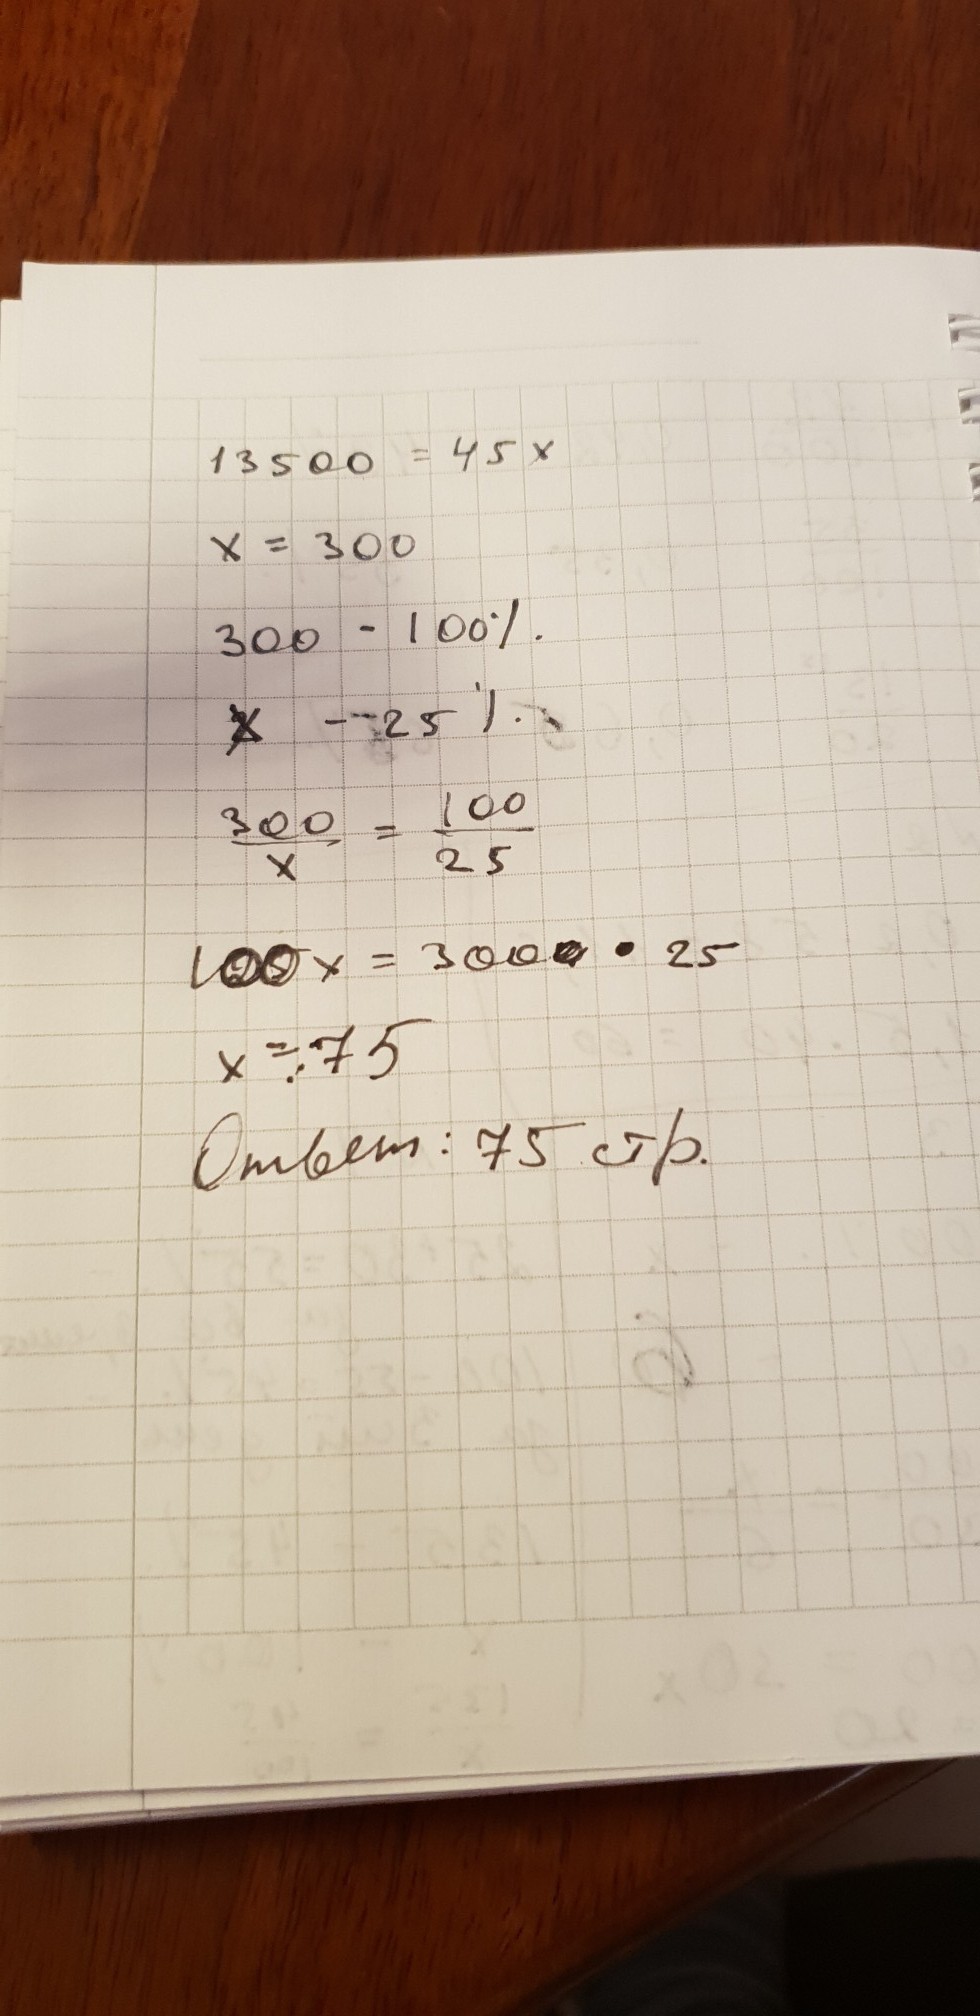 13500 = 45x
x = 300
300 - 100%.
x - 25%.
300/x = 100/25
100x = 300 · 25
x = 75
Ответ: 75 стр.